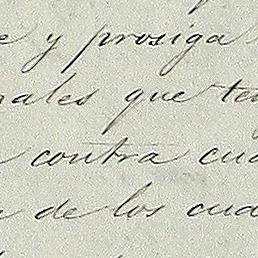 e y prosiga
nales que ten
contra cua
de los cua